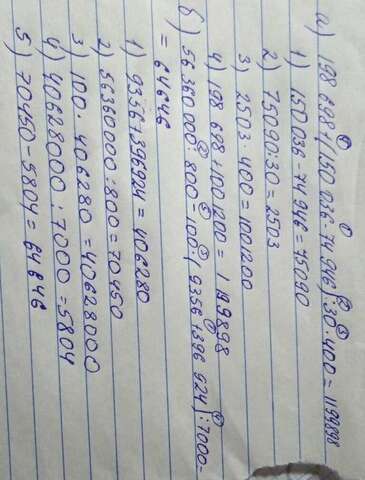 а) 198 698 + (150 036 - 74 946) : 30 · 400 = 1199898
1) 150 036 - 74 946 = 75090
2) 75090 : 30 = 2503
3) 2503 · 400 = 1001200
4) 198 698 + 1001200 = 1 199898
б) 56 360 000 : 800 - 100 · (9356 + 396 924) : 7000 =
= 64646
1) 9356 + 396924 = 406280
2) 56360000 : 800 = 70450
3) 100 · 406280 = 40628000
4) 40628000 : 7000 = 5804
5) 70450 - 5804 = 64646